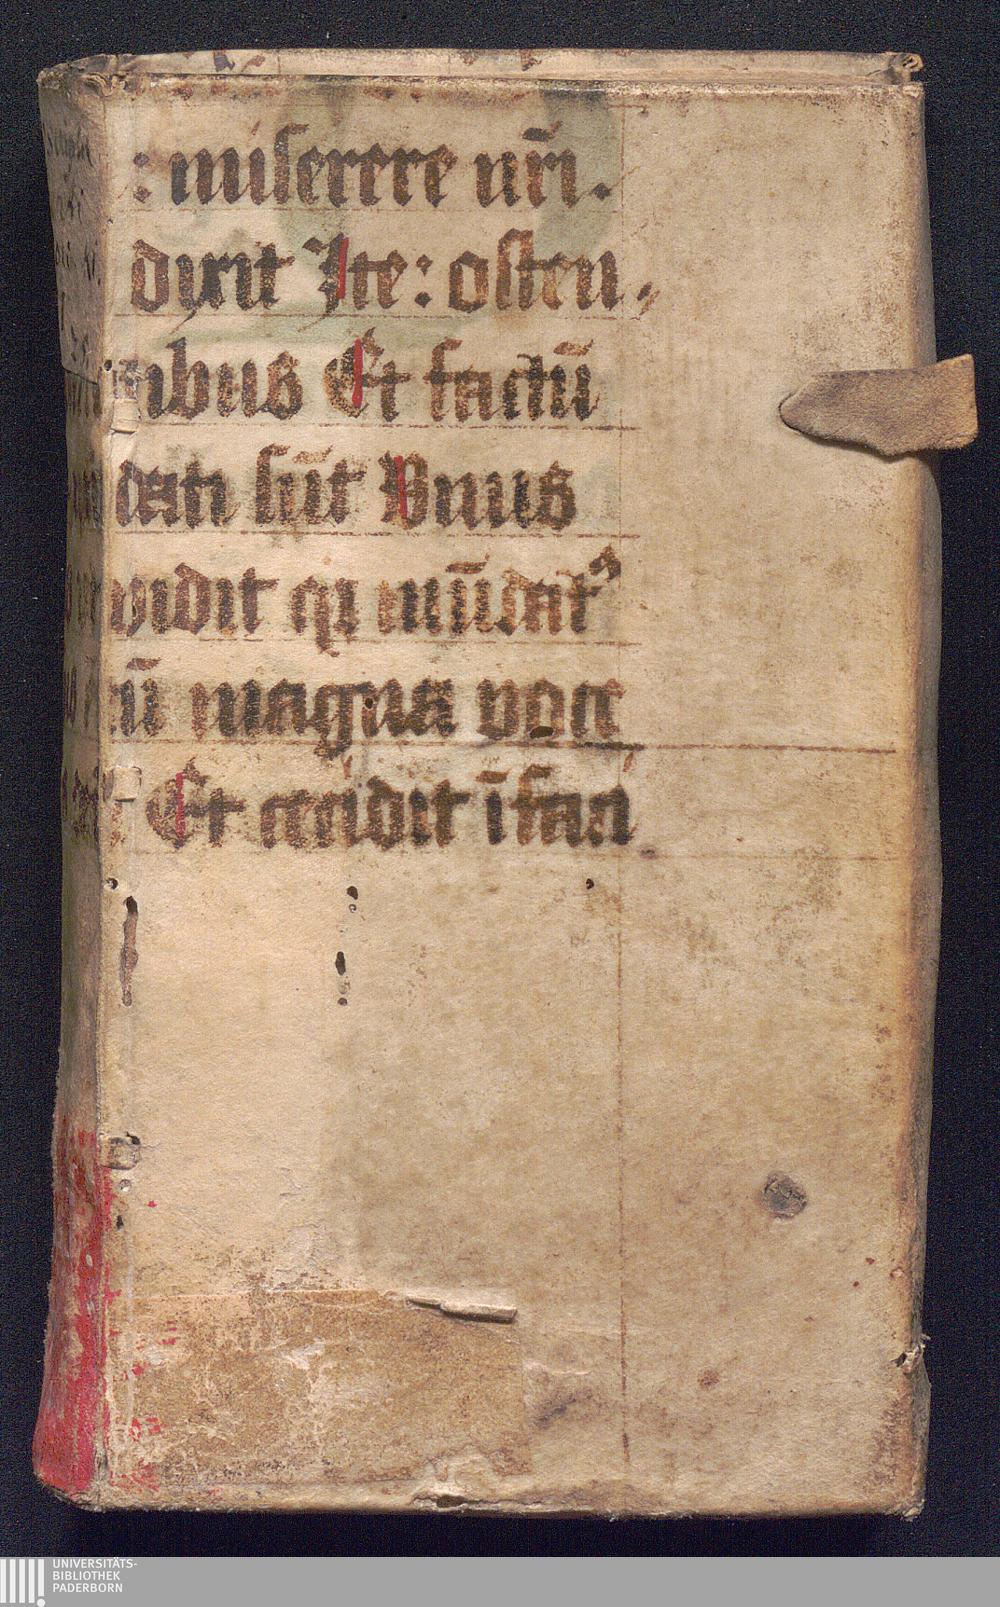 : miserere nr̄i.
dixit Ite: osten,
ibus Et factū
dati sūt Vnus
vidit qi mūdatꝰ
ū magna voce
Et cecidit ī faci
UNIVERSITÄTS-
BIBLIOTHEK
PADERBORN